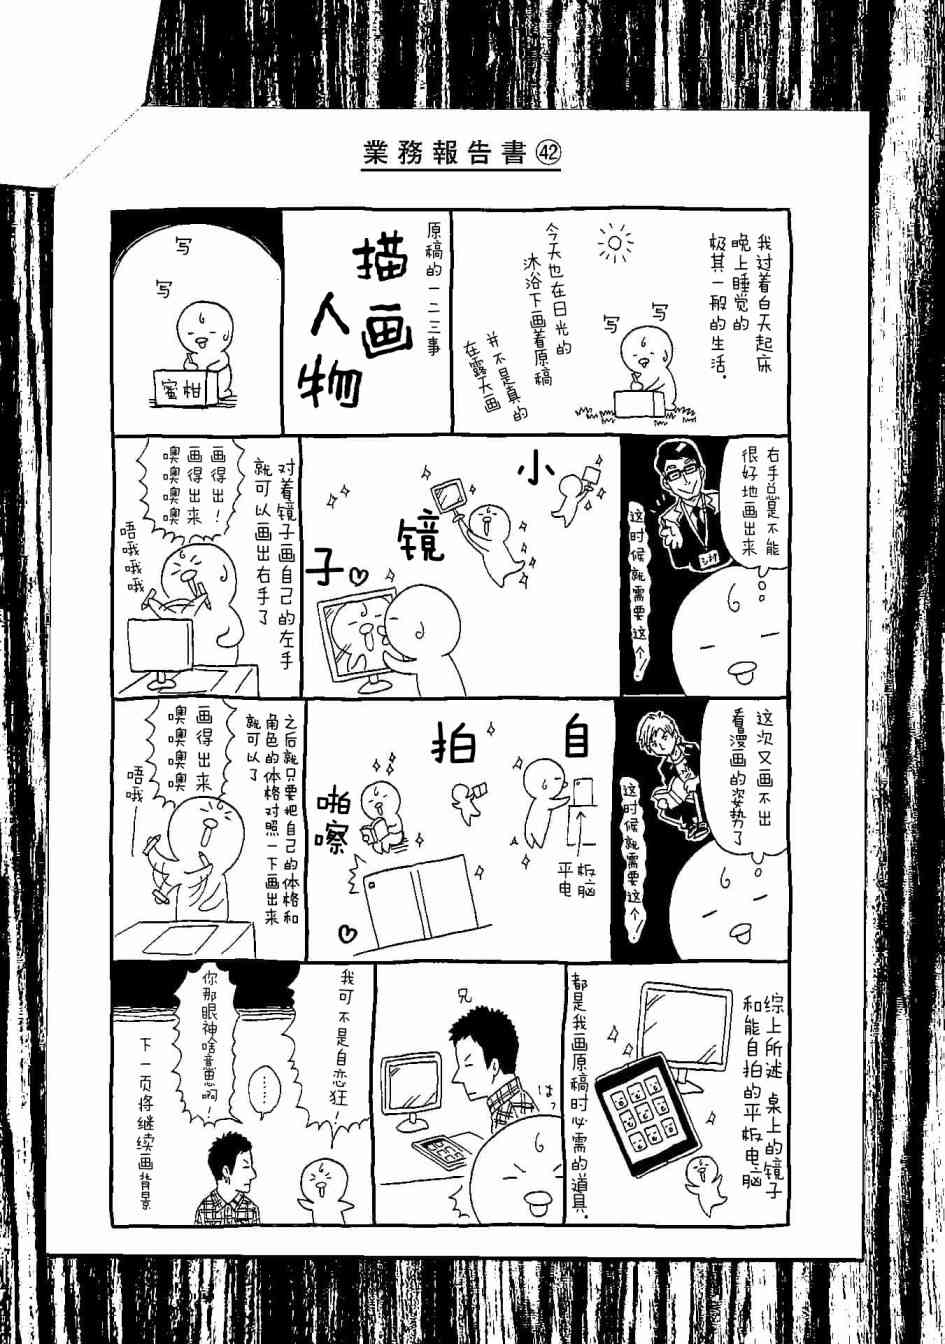 業務報告書㊷
我过着白天起床
晚上睡觉的
极其一般的生活.
今天也在日光的
沐浴下画着原稿
并不是真的
在露天画
写
写
原稿的一二三事
描画
人物
写
写
蜜柑
右手总是不能
很好地画出来
这时候就需要这个!
小
镜
子
对着镜子画自己的左手
就可以画出右手了
画得出!
画得出来
噢噢噢噢
唔哦哦哦
这次又画不出
看漫画的姿势了
这时候就需要这个!
自
拍
平板
电脑
啪嚓
之后就只要把自己的体格和
角色的体格对照一下画出来
就可以了
画得出来
噢噢噢噢
唔哦
综上所述 桌上的镜子
和能自拍的平板电脑
都是我画原稿时必需的道具.
兄
はっ
我可不是自恋狂!
……
你那眼神啥意思啊!
下一页将继续画背景